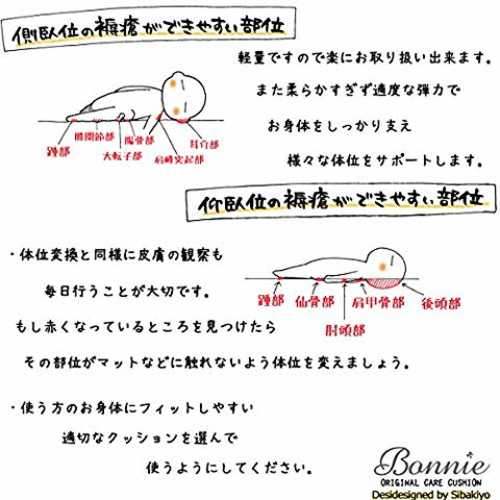 側臥位の褥瘡ができやすい部位
軽量ですので楽にお取り扱い出来ます。
また柔らかすぎず適度な弾力で
お身体をしっかり支え
様々な体位をサポートします。
踵部
膝関節部
大転子部
腸骨部
肩峰突起部
耳介部
仰臥位の褥瘡ができやすい部位
・体位変換と同様に皮膚の観察も
毎日行うことが大切です。
もし赤くなっているところを見つけたら
その部位がマットなどに触れないよう体位を変えましょう。
踵部
仙骨部
肘頭部
肩甲骨部
後頭部
・使う方のお身体にフィットしやすい
適切なクッションを選んで
使うようにしてください。
Bonnie
ORIGINAL CARE CUSHION
Desidesigned by Sibakiyo